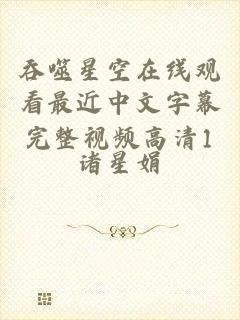 吞噬星空在线观
看最近中文字幕
完整视频高清1
诸星娟